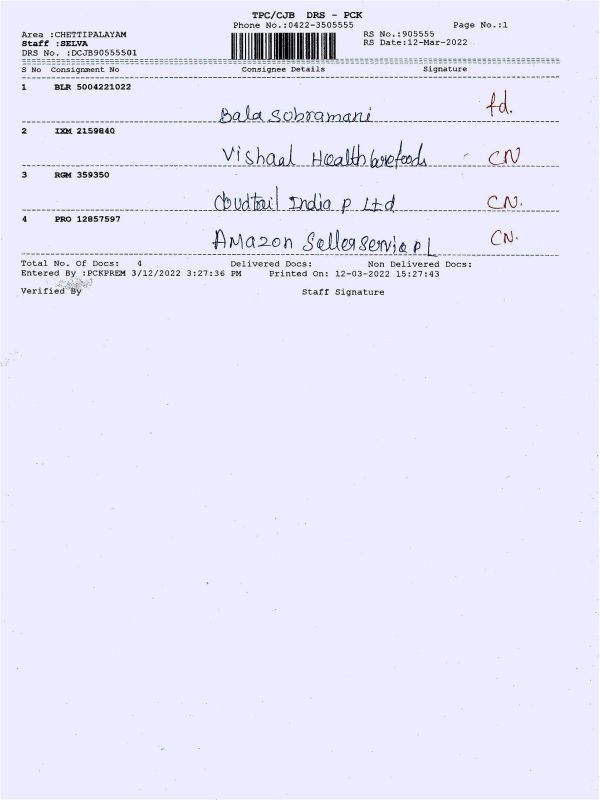 TPC/CJB DRS - PCK
Phone No.:0422-3505555 Page No.:1
Area :CHETTIPALAYAM RS No.:905555
Staff :SELVA RS Date:12-Mar-2022
DRS No. :DCJB90555501
S No Consignment No Consignee Details Signature
1 BLR 5004221022
Bala Subramani fd.
2 IXM 2159840
Vishaal Health Carefoods CN
3 RGM 359350
Cloudtail India P Ltd CN.
4 PRO 12857597
Amazon Seller Service P L CN.
Total No. Of Docs: 4 Delivered Docs: Non Delivered Docs:
Entered By :PCKPREM 3/12/2022 3:27:36 PM Printed On: 12-03-2022 15:27:43
Verified By Staff Signature